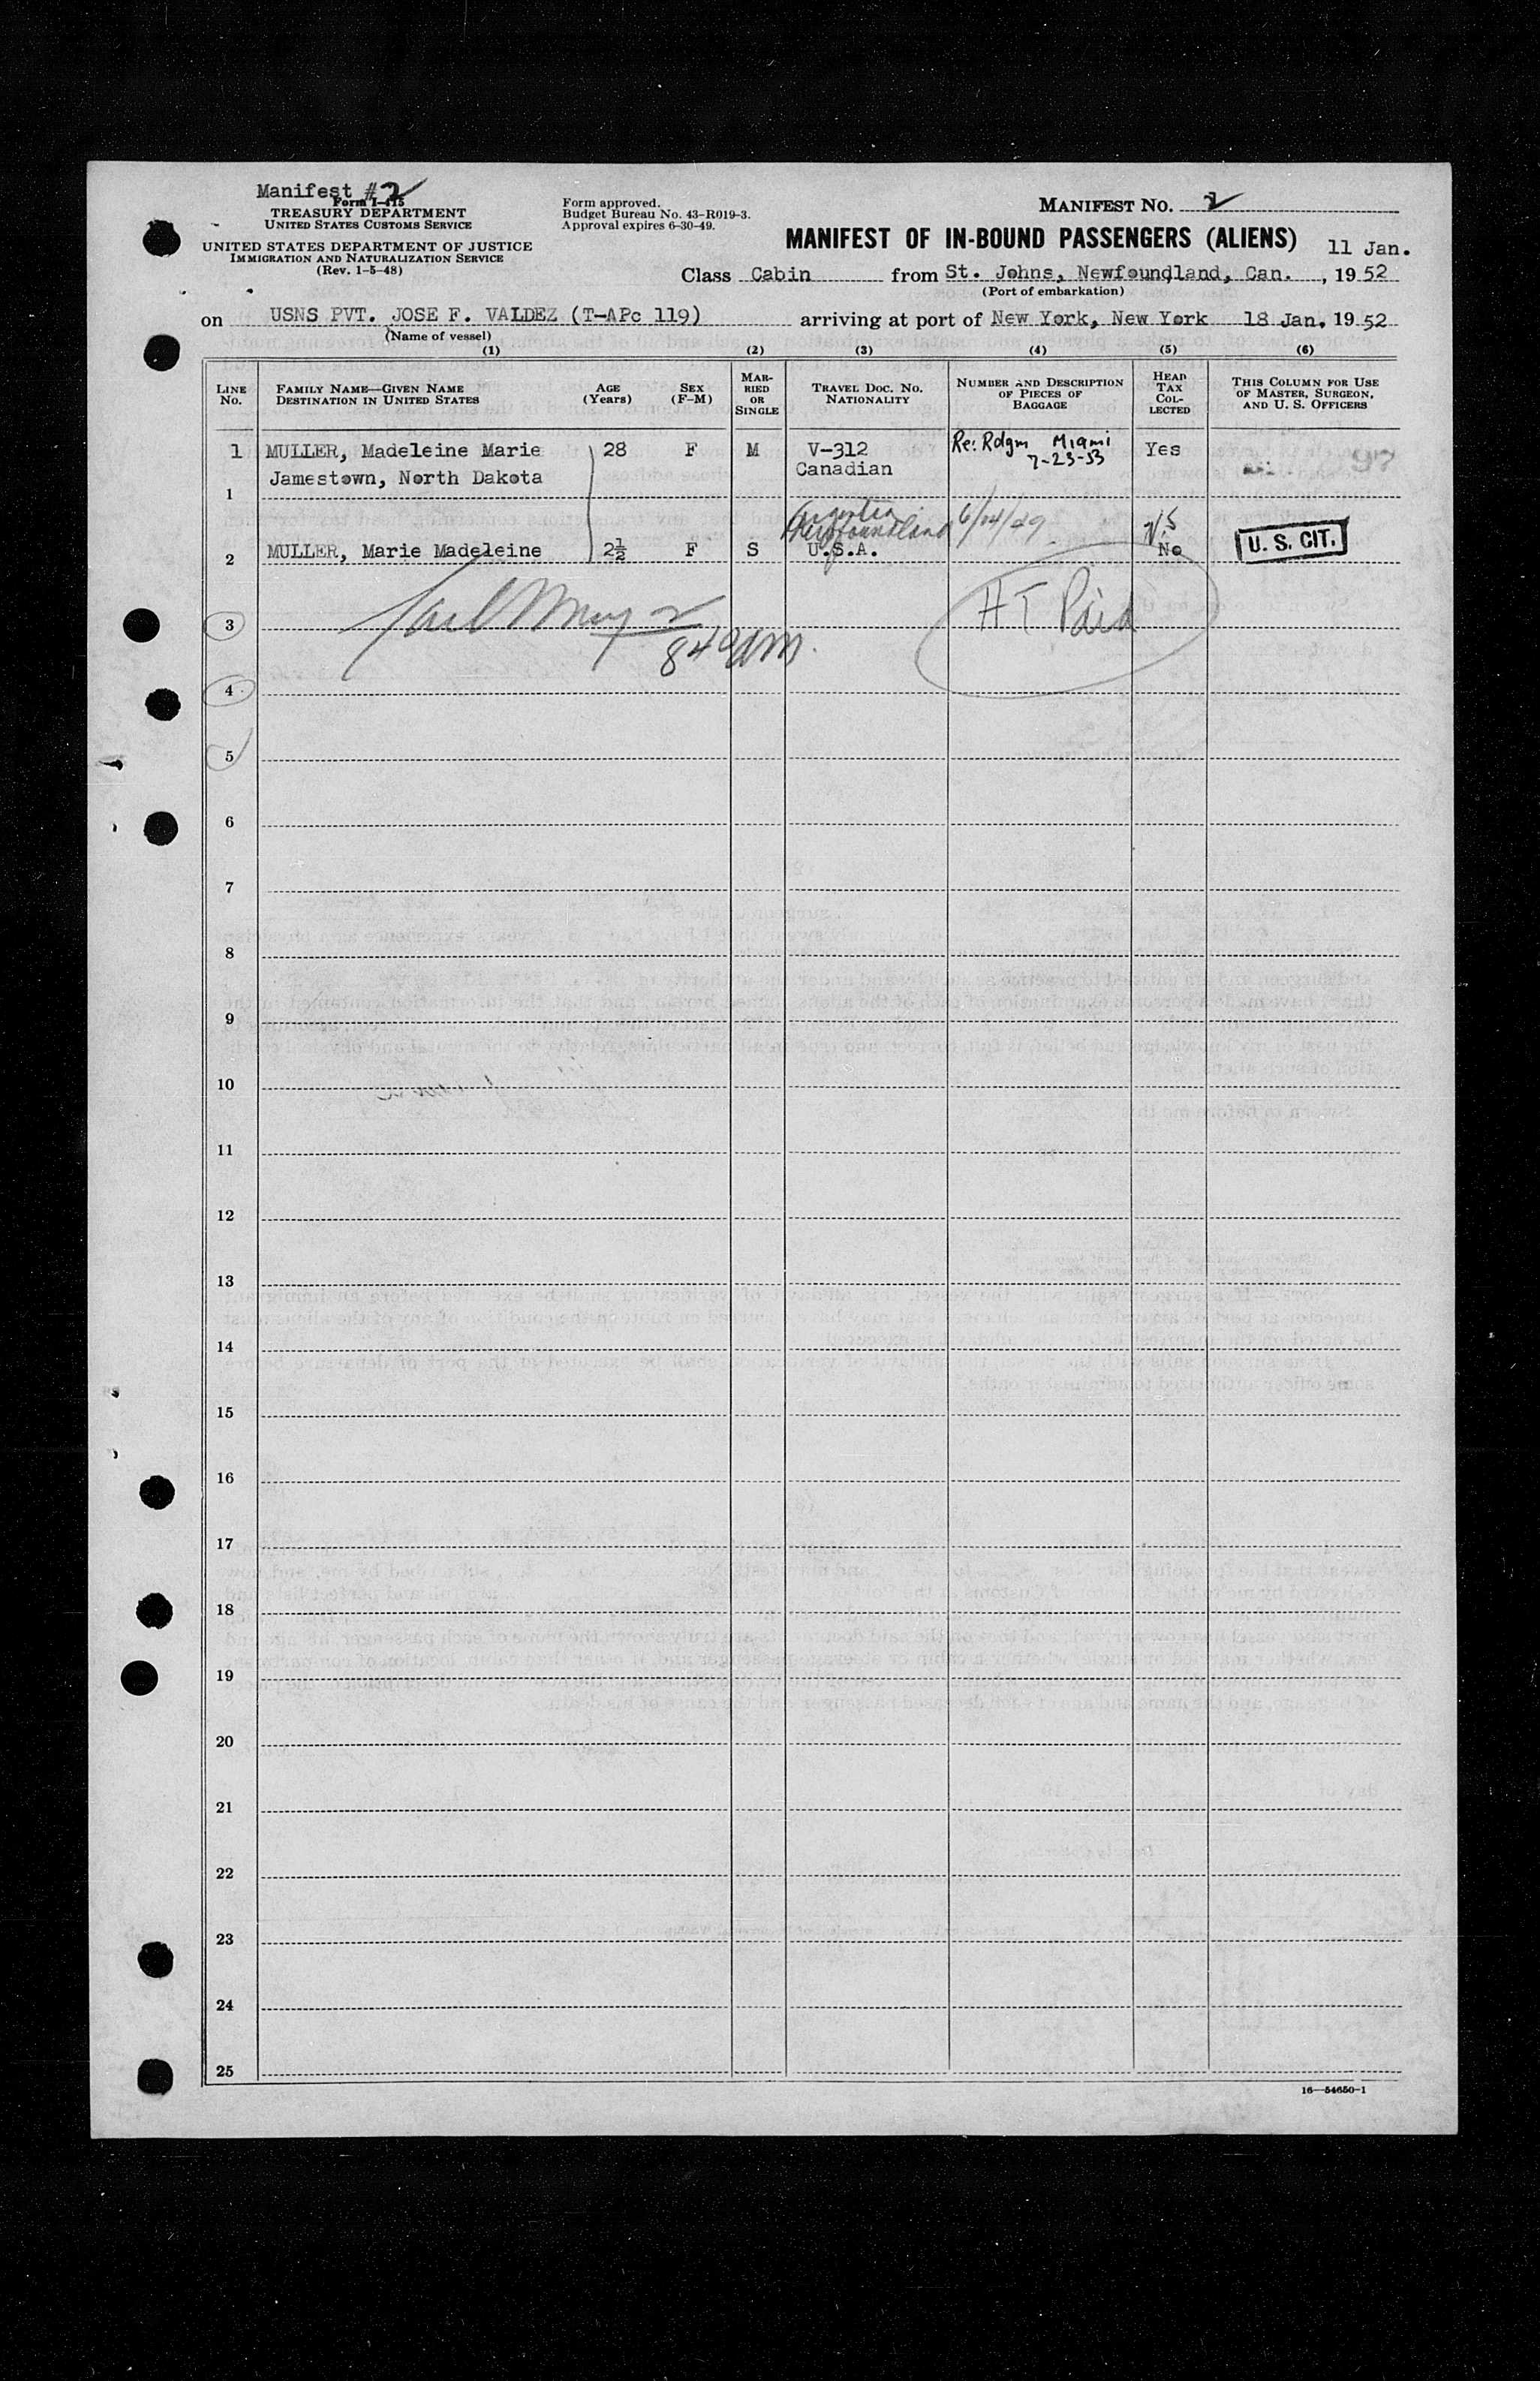 Manifest #2
Form I-415
TREASURY DEPARTMENT
UNITED STATES CUSTOMS SERVICE
UNITED STATES DEPARTMENT OF JUSTICE
IMMIGRATION AND NATURALIZATION SERVICE
(Rev. 1-5-48)
Form approved.
Budget Bureau No. 43-R019-3.
Approval expires 6-30-49.
MANIFEST NO. 2
MANIFEST OF IN-BOUND PASSENGERS (ALIENS) 11 Jan.
Class Cabin from St. Johns, Newfoundland, Can., 1952
(Port of embarkation)
on USNS PVT. JOSE F. VALDEZ (T-APc 119) arriving at port of New York, New York 18 Jan. 1952
(Name of vessel)
(1) (2) (3) (4) (5) (6)
LINE No. FAMILY NAME—GIVEN NAME DESTINATION IN UNITED STATES AGE (Years) SEX (F-M) MARRIED OR SINGLE TRAVEL DOC. NO. NATIONALITY NUMBER AND DESCRIPTION OF PIECES OF BAGGAGE HEAD TAX COLLECTED THIS COLUMN FOR USE OF MASTER, SURGEON, AND U. S. OFFICERS
1 MULLER, Madeleine Marie 28 F M V-312 Re: Rdgm Miami 7-23-53 Yes 97
Jamestown, North Dakota Canadian
1
Argentia Newfoundland 6/14/49
2 MULLER, Marie Madeleine 2½ F S U.S.A. No U. S. CIT.
3 HT Paid
4
5
6
7
8
9
10
11
12
13
14
15
16
17
18
19
20
21
22
23
24
25
16—54650-1